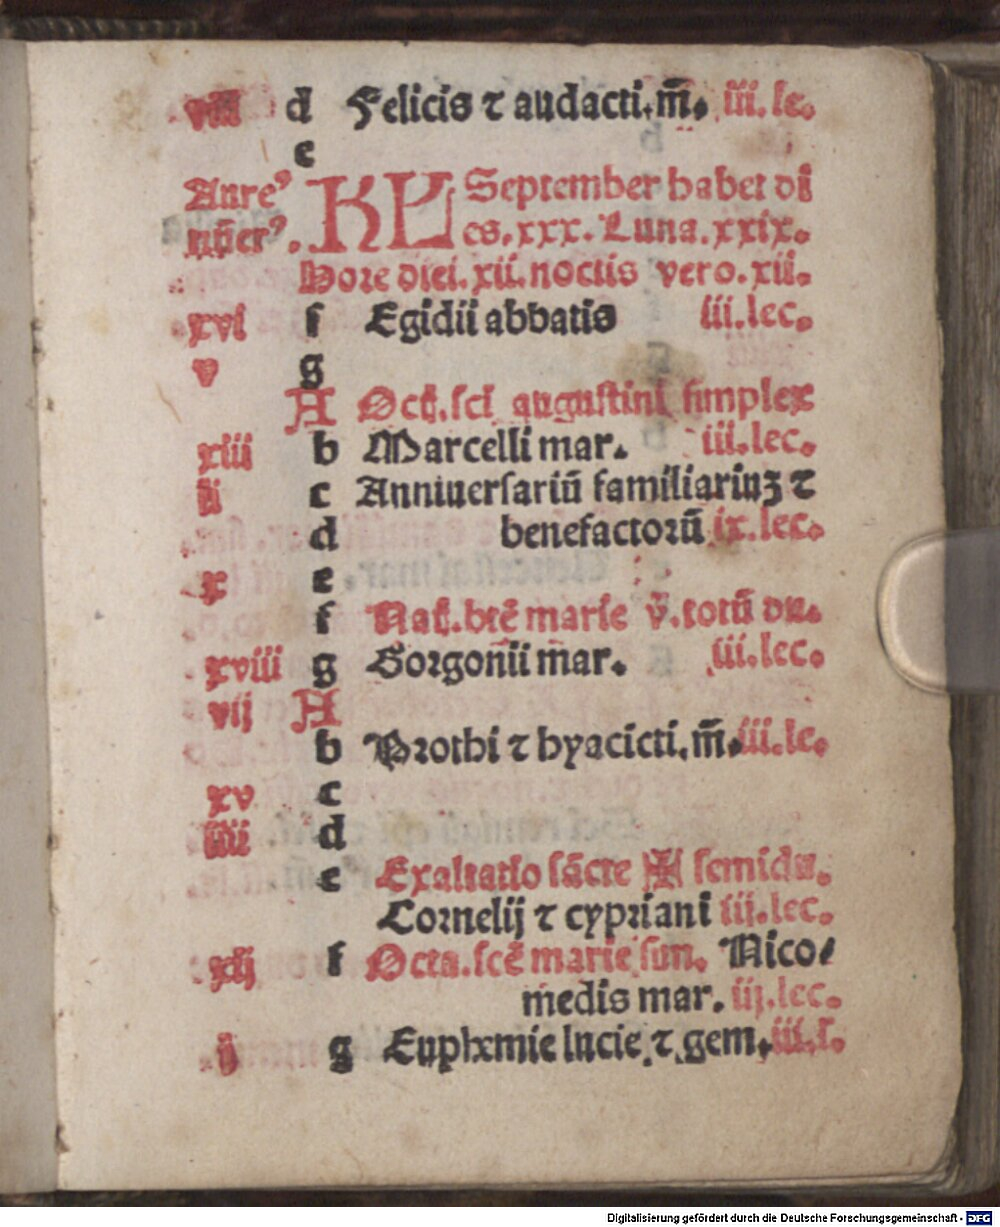 viii d Felicis ⁊ audacti. m̄. iii. le.
e
Aure⁹ KL September habet di
nūer⁹. es. xxx. Luna. xxix.
Hore diei. xii. noctis vero. xii.
xvi f Egidii abbatis iii. lec.
v g
A Oct̄. sci augustini simplex
xiii b Marcelli mar. iii. lec.
ii c Anniuersariū familiariuꝫ ⁊
d benefactorū ix. lec.
x e
f Nat̄. btē marie v̄. totū du.
xviii g Gorgonii mar. iii. lec.
vij A
b Prothi ⁊ hyacicti. m̄. iii. le.
xv c
iiii d
e Exaltatio sācte ✠ semidu.
Cornelij ⁊ cypriani iij. lec.
xij f Octa. scē marie sim. Nico/
medis mar. iij. lec.
j g Euphemie lucie ⁊ gem. iii. l.
Digitalisierung gefördert durch die Deutsche Forschungsgemeinschaft - DFG